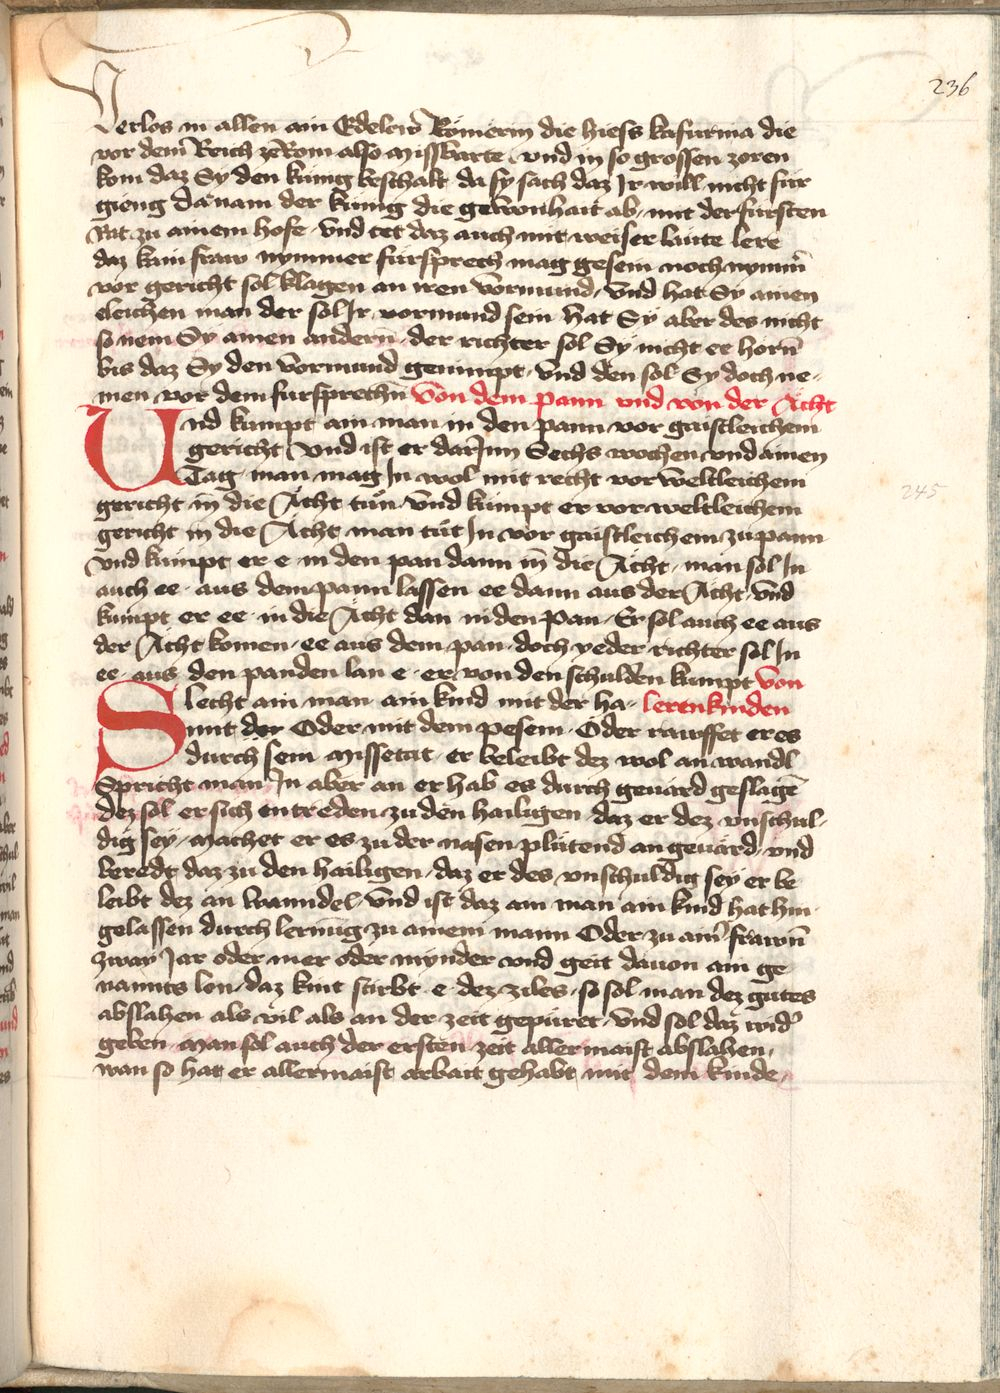 236
Verlos in allen ain Edelew Römerin die hiess kafurnia die
vor dem Reich ze Rom also missbarte vnd in so grossen zoren
kom daz Sy den kunig beschalt da sy sach daz Ir will nicht für
gieng Da nam der kunig die gewonhait ab / mit der fürsten
Rat zu ainem hofe vnd tet daz auch mit weiser laute lere
daz kain fraw nymmer fürsprech mag gesein noch nymm̄
vor gericht sol klagen an iren vormund / vnd hat Sy ainen
eleichen man der sol Ir vormund sein hat Sy aber des nicht
so nem Sy ainen andern̄ der richter sol Sy nicht ee horn̄
bis daz Sy den vormund genimpt / vnd den sol Sy doch ne-
men vor dem fursprechn̄ Von dem pann vnd von der Ácht
Vnd kumpt ain man in den pann vor gaistleichem
gericht vnd ist er dar Inn Sechs wochen vnd ainen
Tag man mag In wol mit recht vor weltleichem
gericht in die Ácht tün vnd kumpt er vor weltleichem
gericht in die Ácht man tüt In vor gaistleichem zu pann
vnd kumpt er e in den pan dann in̄ die Ácht / man sol In
auch ee aus dem pann lassen ee dann aus der Ácht vnd
kumpt er ee in die Ácht dan in den pan Er sol auch ee aus
der Ácht komen ee aus dem pan doch yeder richter sol In
ee aus den panden lan e er von den schulden kumpt von
Slecht ain man ain kind mit der ha- lerenkinden
mit der Oder mit dem pesem Oder rawffet er es
durch sein missetat er beleibt dez wol an wandl
Spricht man In aber an er hab es durch geuärd geslagē
dez sol er sich entreden zu den hailigen daz er dez vnschul-
dig sey machet er es zu der nasen plütend an geuärd vnd
beredt daz zu den hailigen daz er des vnschuldig sey er be
leibt dez an wanndel vnd ist daz ain man ain kind hat hin
gelassen durch lernūg zu ainem mann Oder zu aim̄ frawn̄
zway Jar oder mer oder mynder vnd geit dauon ain ge
nannts lon daz kint stirbt e dez ziles so sol man dez gutes
abslahen als vil als an der zeit gepüret vnd sol daz wid'
geben man sol auch der ersten zeit aller maist abslahen
wan so hat er allermaist arbait gehabt mit dem kinde
245